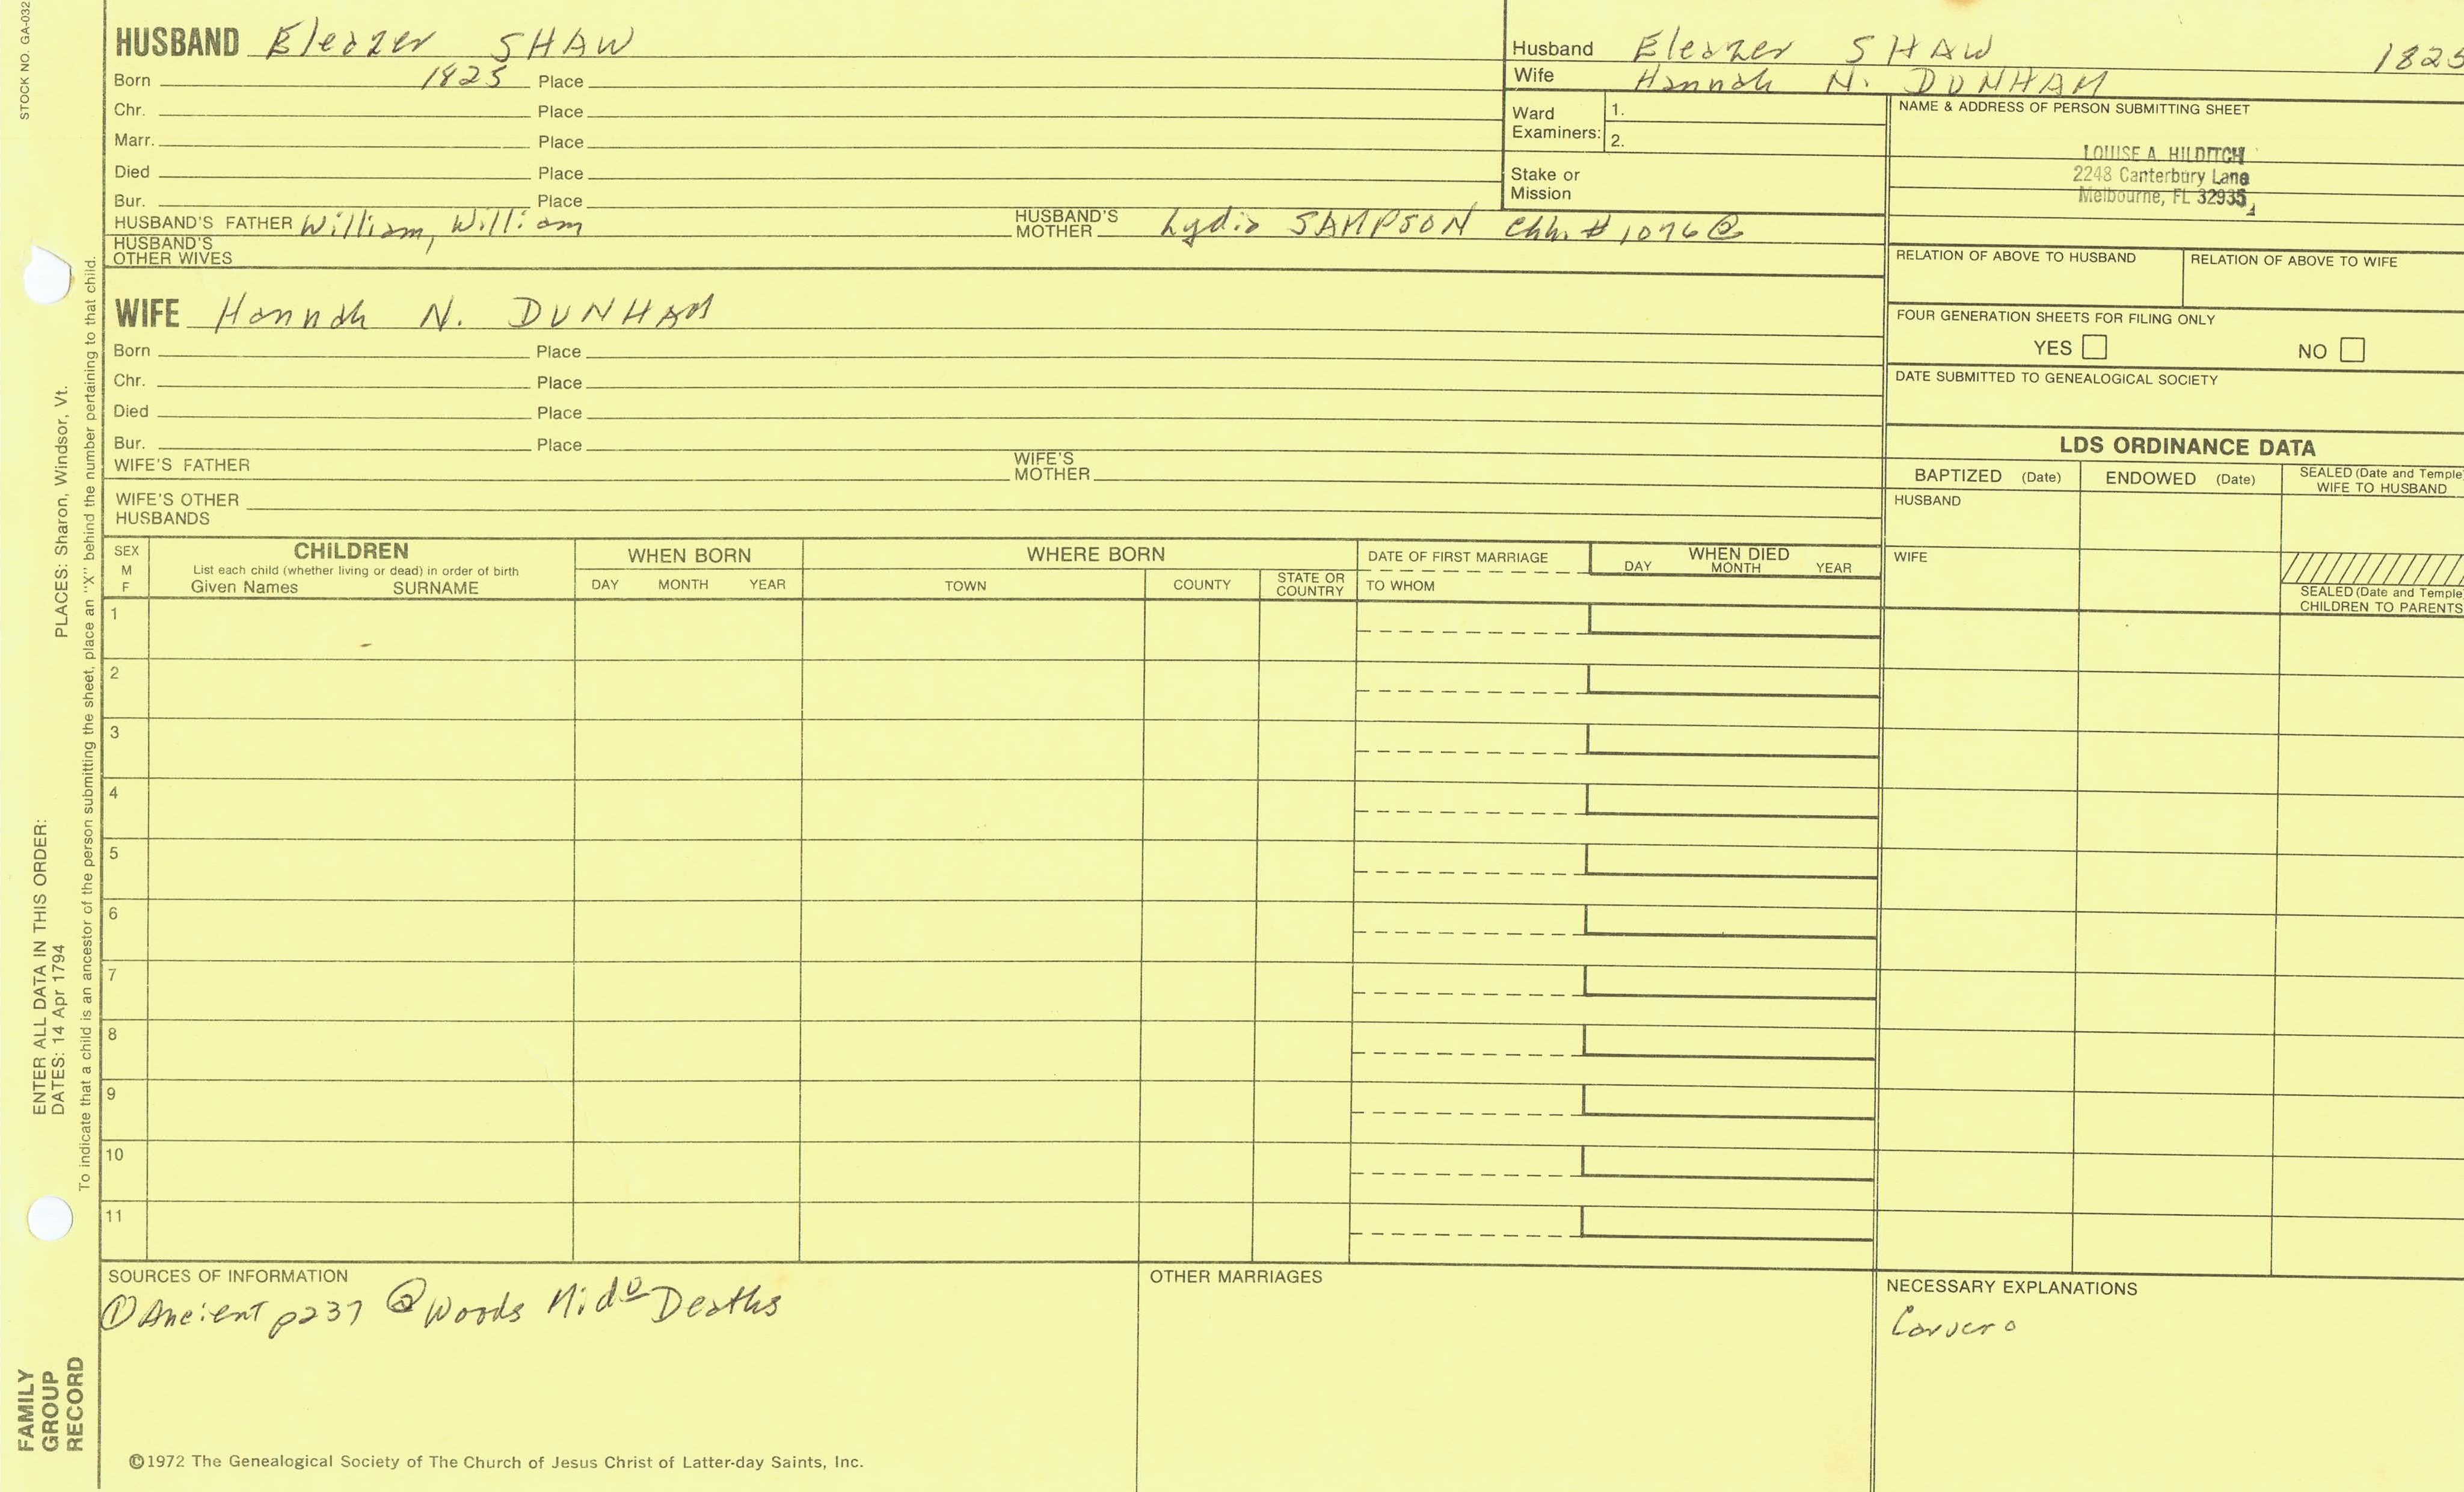 STOCK NO. GA-032
HUSBAND Eleazer SHAW
Born 1825 Place
Chr. Place
Marr. Place
Died Place
Bur. Place
HUSBAND'S FATHER William, William HUSBAND'S MOTHER Lydia SAMPSON Chh. # 1076②
HUSBAND'S OTHER WIVES
WIFE Hannah N. DUNHAM
Born Place
Chr. Place
Died Place
Bur. Place
WIFE'S FATHER WIFE'S MOTHER
WIFE'S OTHER HUSBANDS
Husband Eleazer SHAW 1825
Wife Hannah N. DUNHAM
Ward Examiners: 1.
2.
Stake or Mission
NAME & ADDRESS OF PERSON SUBMITTING SHEET
LOUISE A. HILDITCH
2248 Canterbury Lane
Melbourne, FL 32935
RELATION OF ABOVE TO HUSBAND RELATION OF ABOVE TO WIFE
FOUR GENERATION SHEETS FOR FILING ONLY
YES NO
DATE SUBMITTED TO GENEALOGICAL SOCIETY
LDS ORDINANCE DATA
BAPTIZED (Date) ENDOWED (Date) SEALED (Date and Temple) WIFE TO HUSBAND
HUSBAND
WIFE
SEALED (Date and Temple) CHILDREN TO PARENTS
SEX M F
CHILDREN
List each child (whether living or dead) in order of birth
Given Names SURNAME
WHEN BORN
DAY MONTH YEAR
WHERE BORN
TOWN COUNTY STATE OR COUNTRY
DATE OF FIRST MARRIAGE
TO WHOM
WHEN DIED
DAY MONTH YEAR
1
2
3
4
5
6
7
8
9
10
11
SOURCES OF INFORMATION
① Ancient p237 ② Woods Mido Deaths
OTHER MARRIAGES
NECESSARY EXPLANATIONS
©1972 The Genealogical Society of The Church of Jesus Christ of Latter-day Saints, Inc.
PLACES: Sharon, Windsor, Vt.
ENTER ALL DATA IN THIS ORDER:
DATES: 14 Apr 1794
To indicate that a child is an ancestor of the person submitting the sheet, place an "X" behind the number pertaining to that child.
FAMILY
GROUP
RECORD